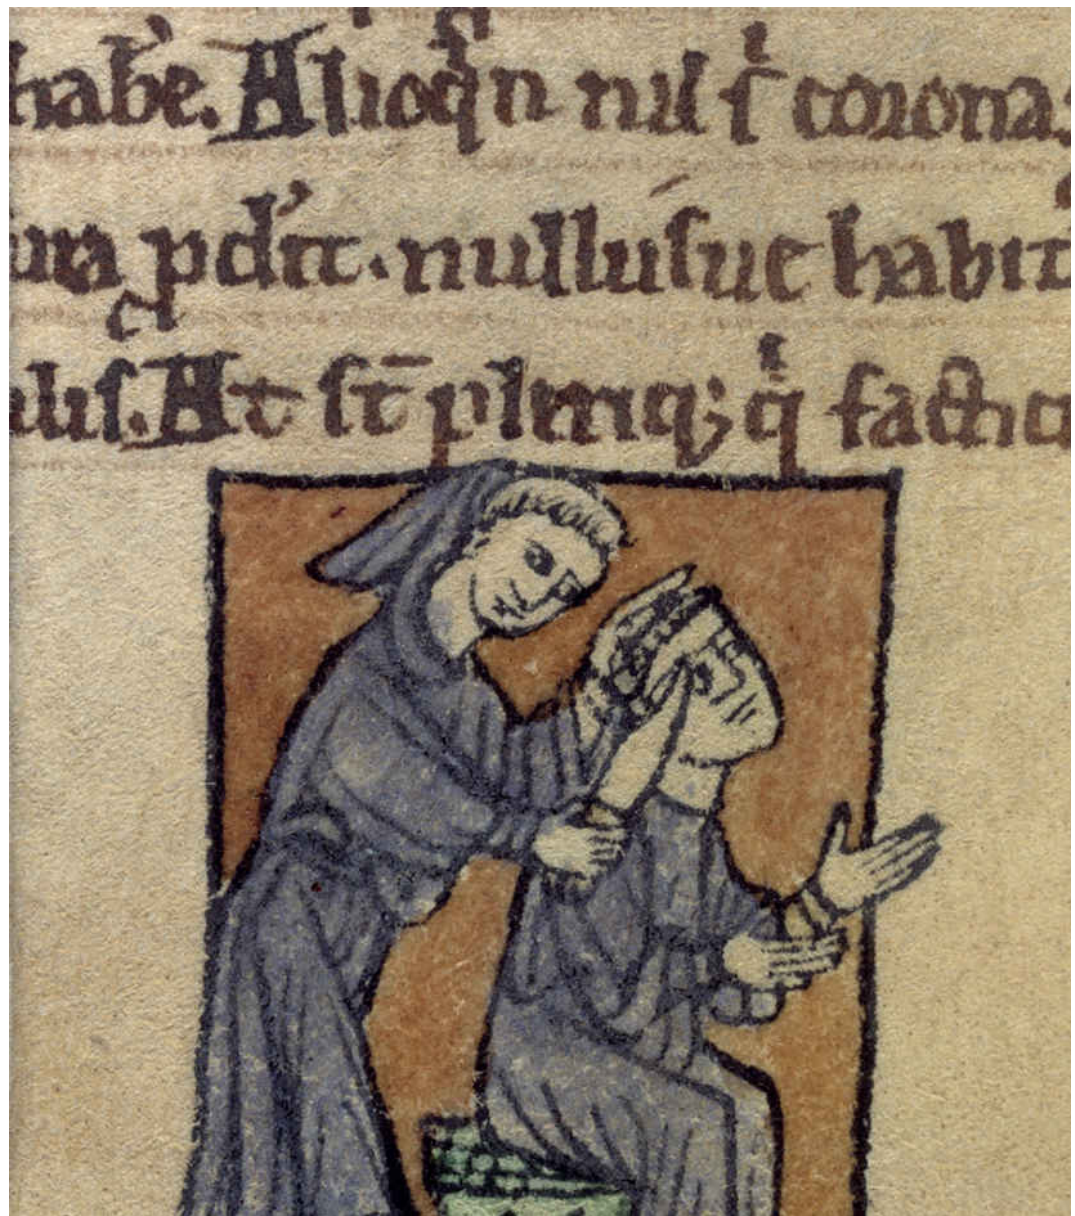 habe̾. Alioqͥn nil ẜ corona
ura pdit̾. nulluſue habit
alis. At ſt̄ pleriq; qͥ factici